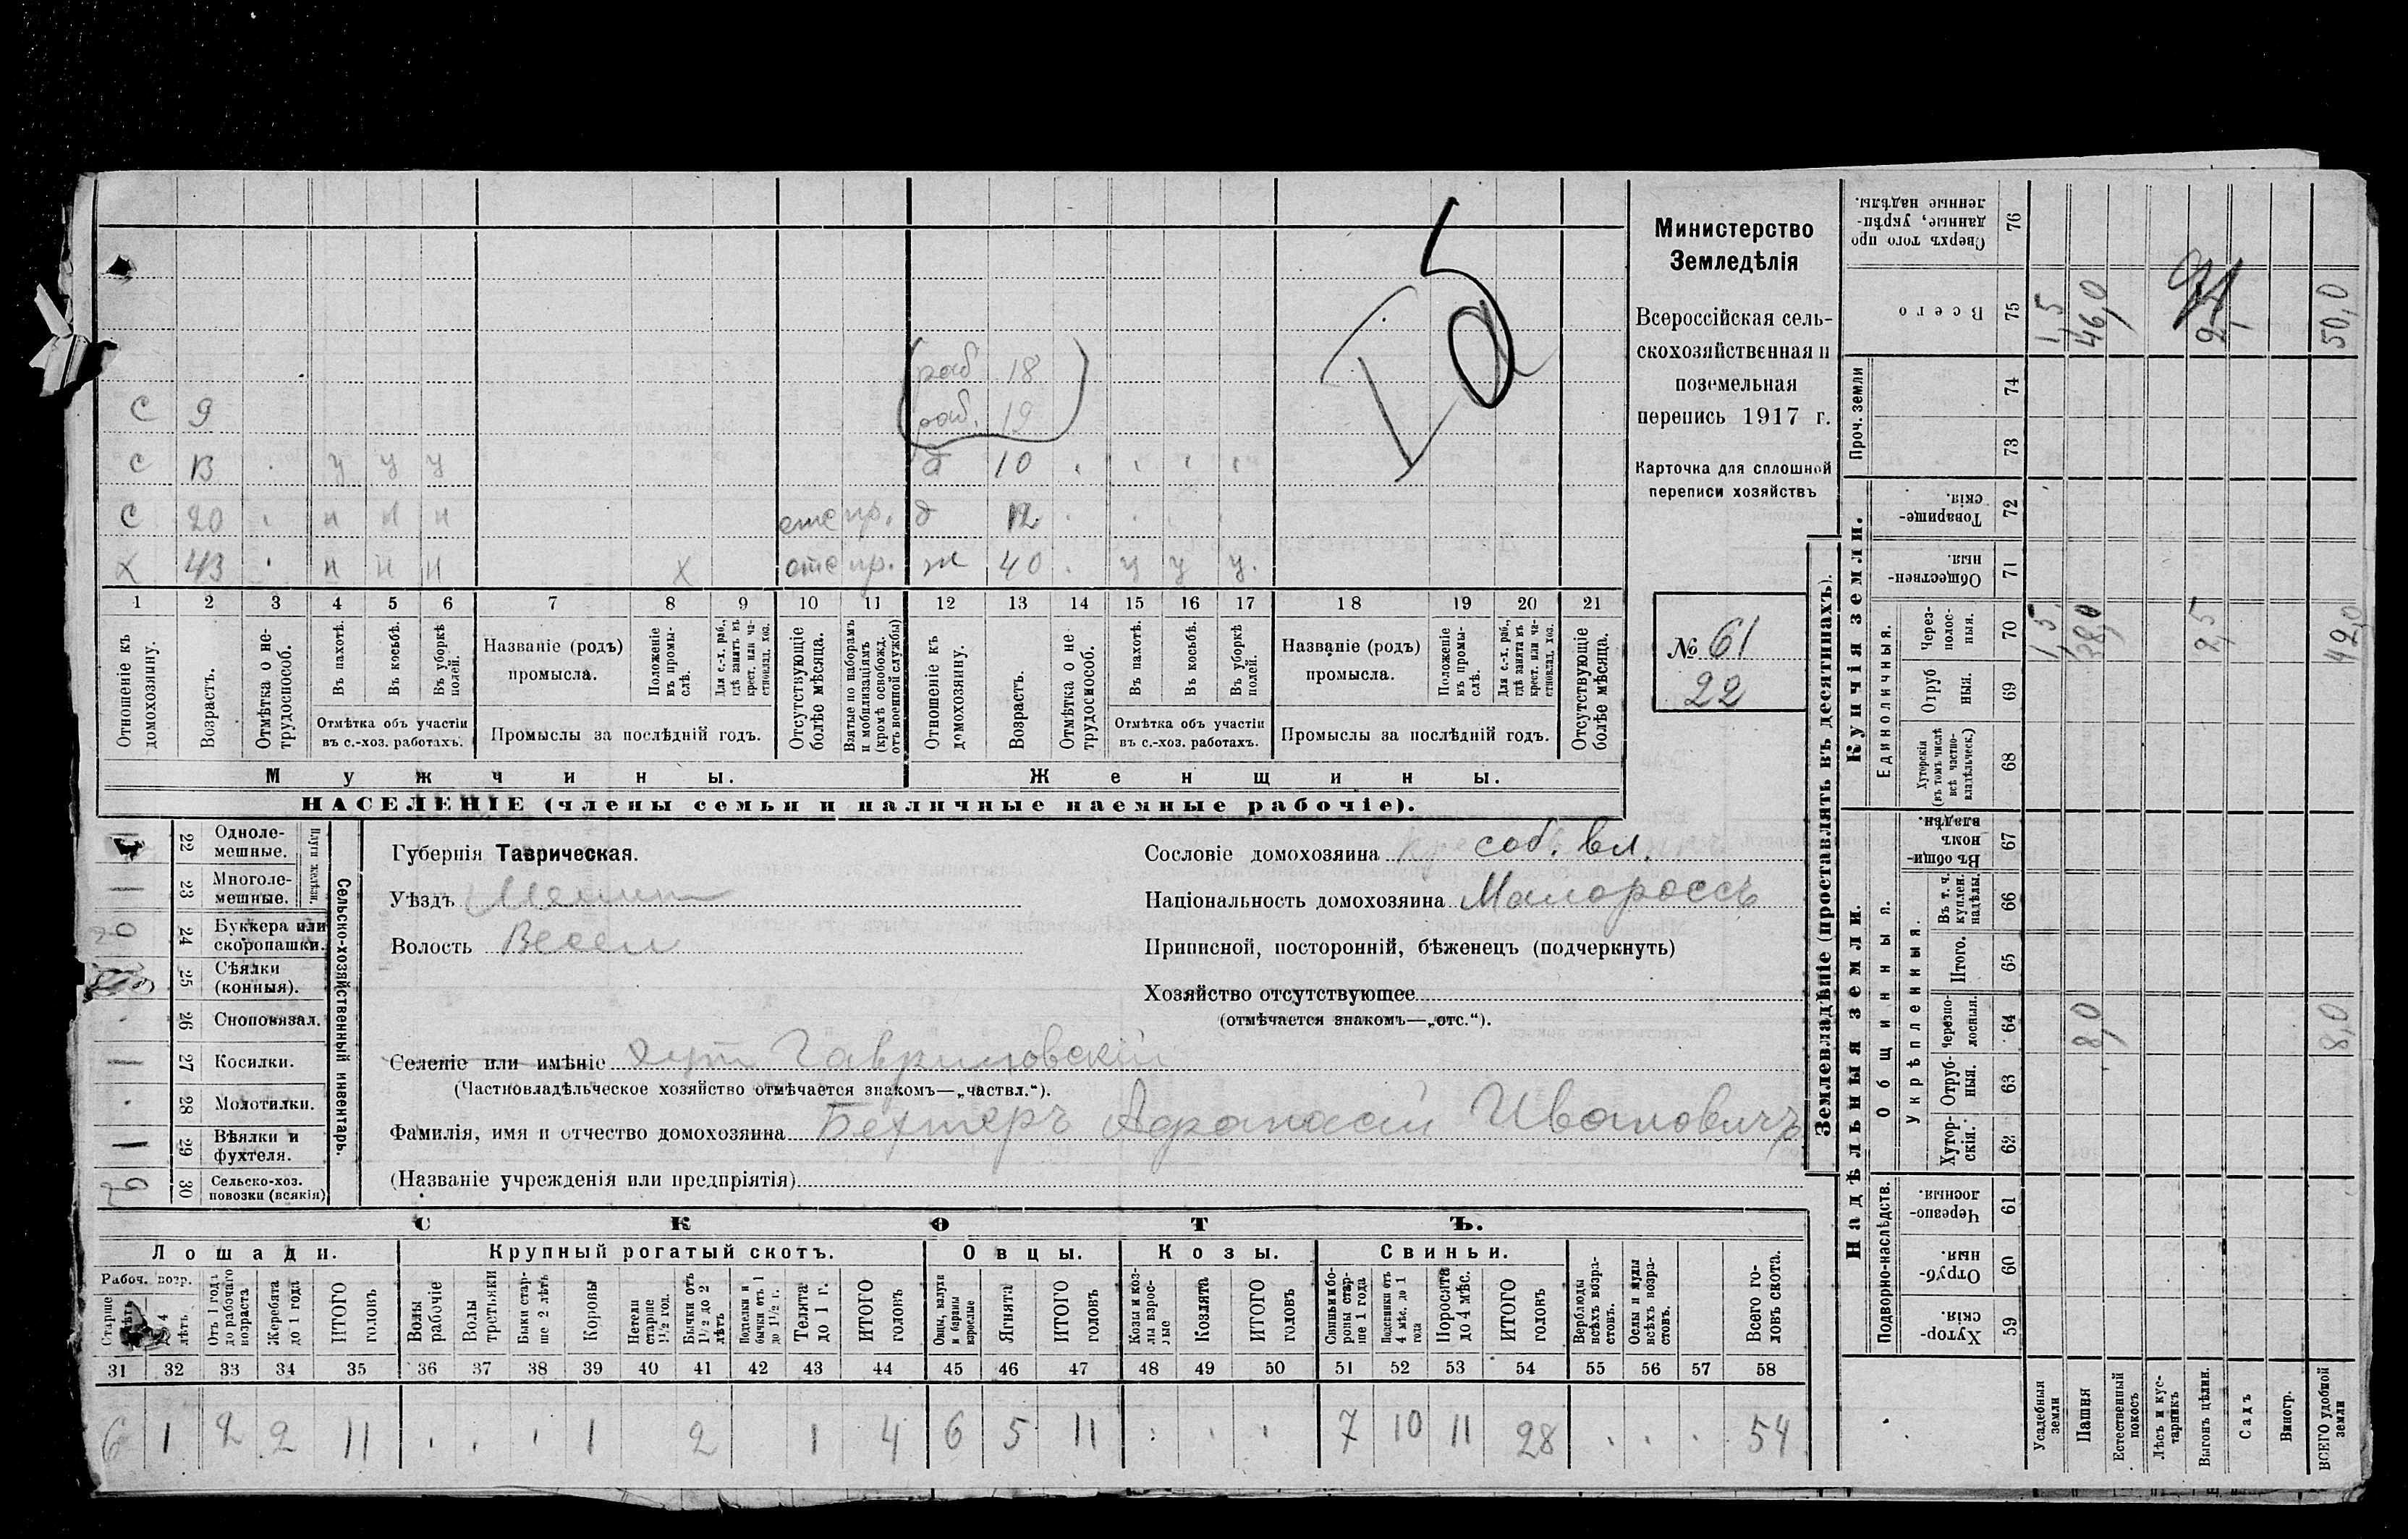 5
I a
(раб 18
раб. 19)
С 9
С 13 у у у д 10
С 20 н н н оте пр. д 12
Х 43 н н н Х оте пр. ж 40 у у у.
1 2 3 4 5 6 7 8 9 10 11 12 13 14 15 16 17 18 19 20 21
Отношеніе къ домохозяину.
Возрастъ.
Отмѣтка о не-трудоспособ.
Въ пахотѣ.
Въ косьбѣ.
Въ уборкѣ полей.
Отмѣтка объ участіи въ с.-хоз. работахъ.
Названіе (родъ) промысла.
Положеніе въ промы-слѣ.
Для с.-х. раб., гдѣ занятъ въ крест. или ча-стновлад. хоз.
Промыслы за послѣдній годъ.
Отсутствующіе болѣе мѣсяца.
Взятые по наборамъ и мобилизаціямъ (кромѣ освобожд. отъ военной службы)
Отношеніе къ домохозяину.
Возрастъ.
Отмѣтка о не трудоспособ.
Въ пахотѣ.
Въ косьбѣ.
Въ уборкѣ полей.
Отмѣтка объ участіи въ с.-хоз. работахъ.
Названіе (родъ) промысла.
Положеніе въ промы-слѣ.
Для с.-х. раб., гдѣ занятъ въ крест. или ча-стновлад. хоз.
Промыслы за послѣдній годъ.
Отсутствующіе болѣе мѣсяца.
Мужчины.
Женщины.
НАСЕЛЕНІЕ (члены семьи и наличные наемные рабочіе).
Министерство
Земледѣлія
Всероссійская сель-
скохозяйственная и
поземельная
перепись 1917 г.
Карточка для сплошной
переписи хозяйствъ
№ 61
22
Сельско-хозяйственный инвентарь.
Плуги желѣзн.
22 Одноле-мешные.
1 23 Многоле-мешные.
24 Буккера или скоропашки.
25 Сѣялки (конныя).
26 Сноповязал.
1 27 Косилки.
28 Молотилки.
1 29 Вѣялки и фухтеля.
2 30 Сельско-хоз. повозки (всякія)
Губернія Таврическая.
Уѣздъ Мелит
Волость Весел
Сословіе домохозяина соб. вл.
Національность домохозяина Малороссъ
Приписной, посторонній, бѣженецъ (подчеркнуть)
Хозяйство отсутствующее
(отмѣчается знакомъ—„отс.“).
Селеніе или имѣніе хут Гавриловскій
(Частновладѣльческое хозяйство отмѣчается знакомъ—„частвл.“).
Фамилія, имя и отчество домохозяина Бехтеръ Афанасій Ивановичъ
(Названіе учрежденія или предпріятія)
СКОТЪ.
Лошади. Крупный рогатый скотъ. Овцы. Козы. Свиньи.
Рабоч. возр.
Старше
4 лѣтъ
Отъ 1 года до рабочаго возраста
Жеребята до 1 года
ИТОГО головъ
Волы рабочіе
Волы третьяки
Быки стар-ше 2 лѣтъ
Коровы
Нетели старше 1½ год.
Бычки отъ 1½ до 2 лѣтъ
Подтелки и бычки отъ 1 до 1½ г.
Телята до 1 г.
ИТОГО головъ
Овцы, валухи и бараны взрослые
Ягнята
ИТОГО головъ
Козы и коз-лы взрос-лые
Козлята
ИТОГО головъ
Свиньи и бо-ровы стар-ше 1 года
Подсвинки отъ 4 мѣс. до 1 года
Поросята до 4 мѣс.
ИТОГО головъ
Верблюды всѣхъ возра-стовъ.
Ослы и мулы всѣхъ возра-стовъ.
Всего го-ловъ скота.
31 32 33 34 35 36 37 38 39 40 41 42 43 44 45 46 47 48 49 50 51 52 53 54 55 56 57 58
6 1 2 2 11 1 2 1 4 6 5 11 7 10 11 28 54
Землевладѣніе (проставлять въ десятинахъ).
Купчія земли.
Надѣльныя земли.
76 Сверхъ того про данные, укрѣп-ленные надѣлы.
75 Всего 1,5 46,0 50,0
Проч. земли
74
73
72 Товарище-скія.
71 Обществен-ныя.
Единоличныя.
70 Через-полос-ныя. 1,5 38,0 2,5 42,0
69 Отруб ныя.
68 Хуторскія (въ томъ числѣ всѣ частно-владѣльческ.)
Общинныя.
67 Въ общи-номъ владѣн.
Укрѣпленныя.
66 Въ т. ч. куплен. надѣлы.
65 Итого.
64 Черезпо-лосныя. 8,0 8,0
63 Отруб-ныя.
62 Хутор-скія.
Подворно-наслѣдств.
61 Черезпо-лосныя.
60 Отруб-ныя.
59 Хутор-скія.
Усадебныя земли
Пашня
Естественный покосъ
Лѣсъ и кус-тарникъ
Выгонъ цѣлин.
Садъ
Виногр.
ВСЕГО удобной земли